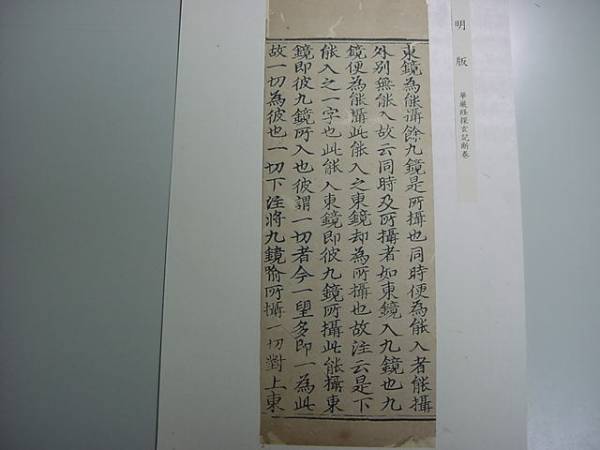 明版
華厳経探玄記断巻
東鏡為能攝餘九鏡是所攝也同時便為能入者能攝
外別無能入故云同時及所攝者如東鏡入九鏡也九
鏡便為能攝此能入之東鏡却為所攝也故注云是下
能入之一字也此能入東鏡即彼九鏡所攝此能攝東
鏡即彼九鏡所入也彼謂一切者今一望多即一為此
故一切為彼也一切下注將九鏡喻所攝一切對上東